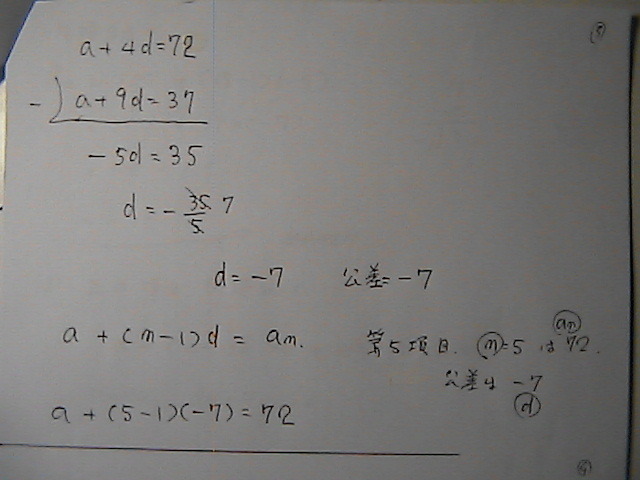 a + 4d = 72
-) a + 9d = 37
-5d = 35
d = - 35/5 7
d = -7 公差 = -7
a + (n-1)d = an.
第5項目. n=5 は 72.
an
公差は -7
d
a + (5-1)(-7) = 72